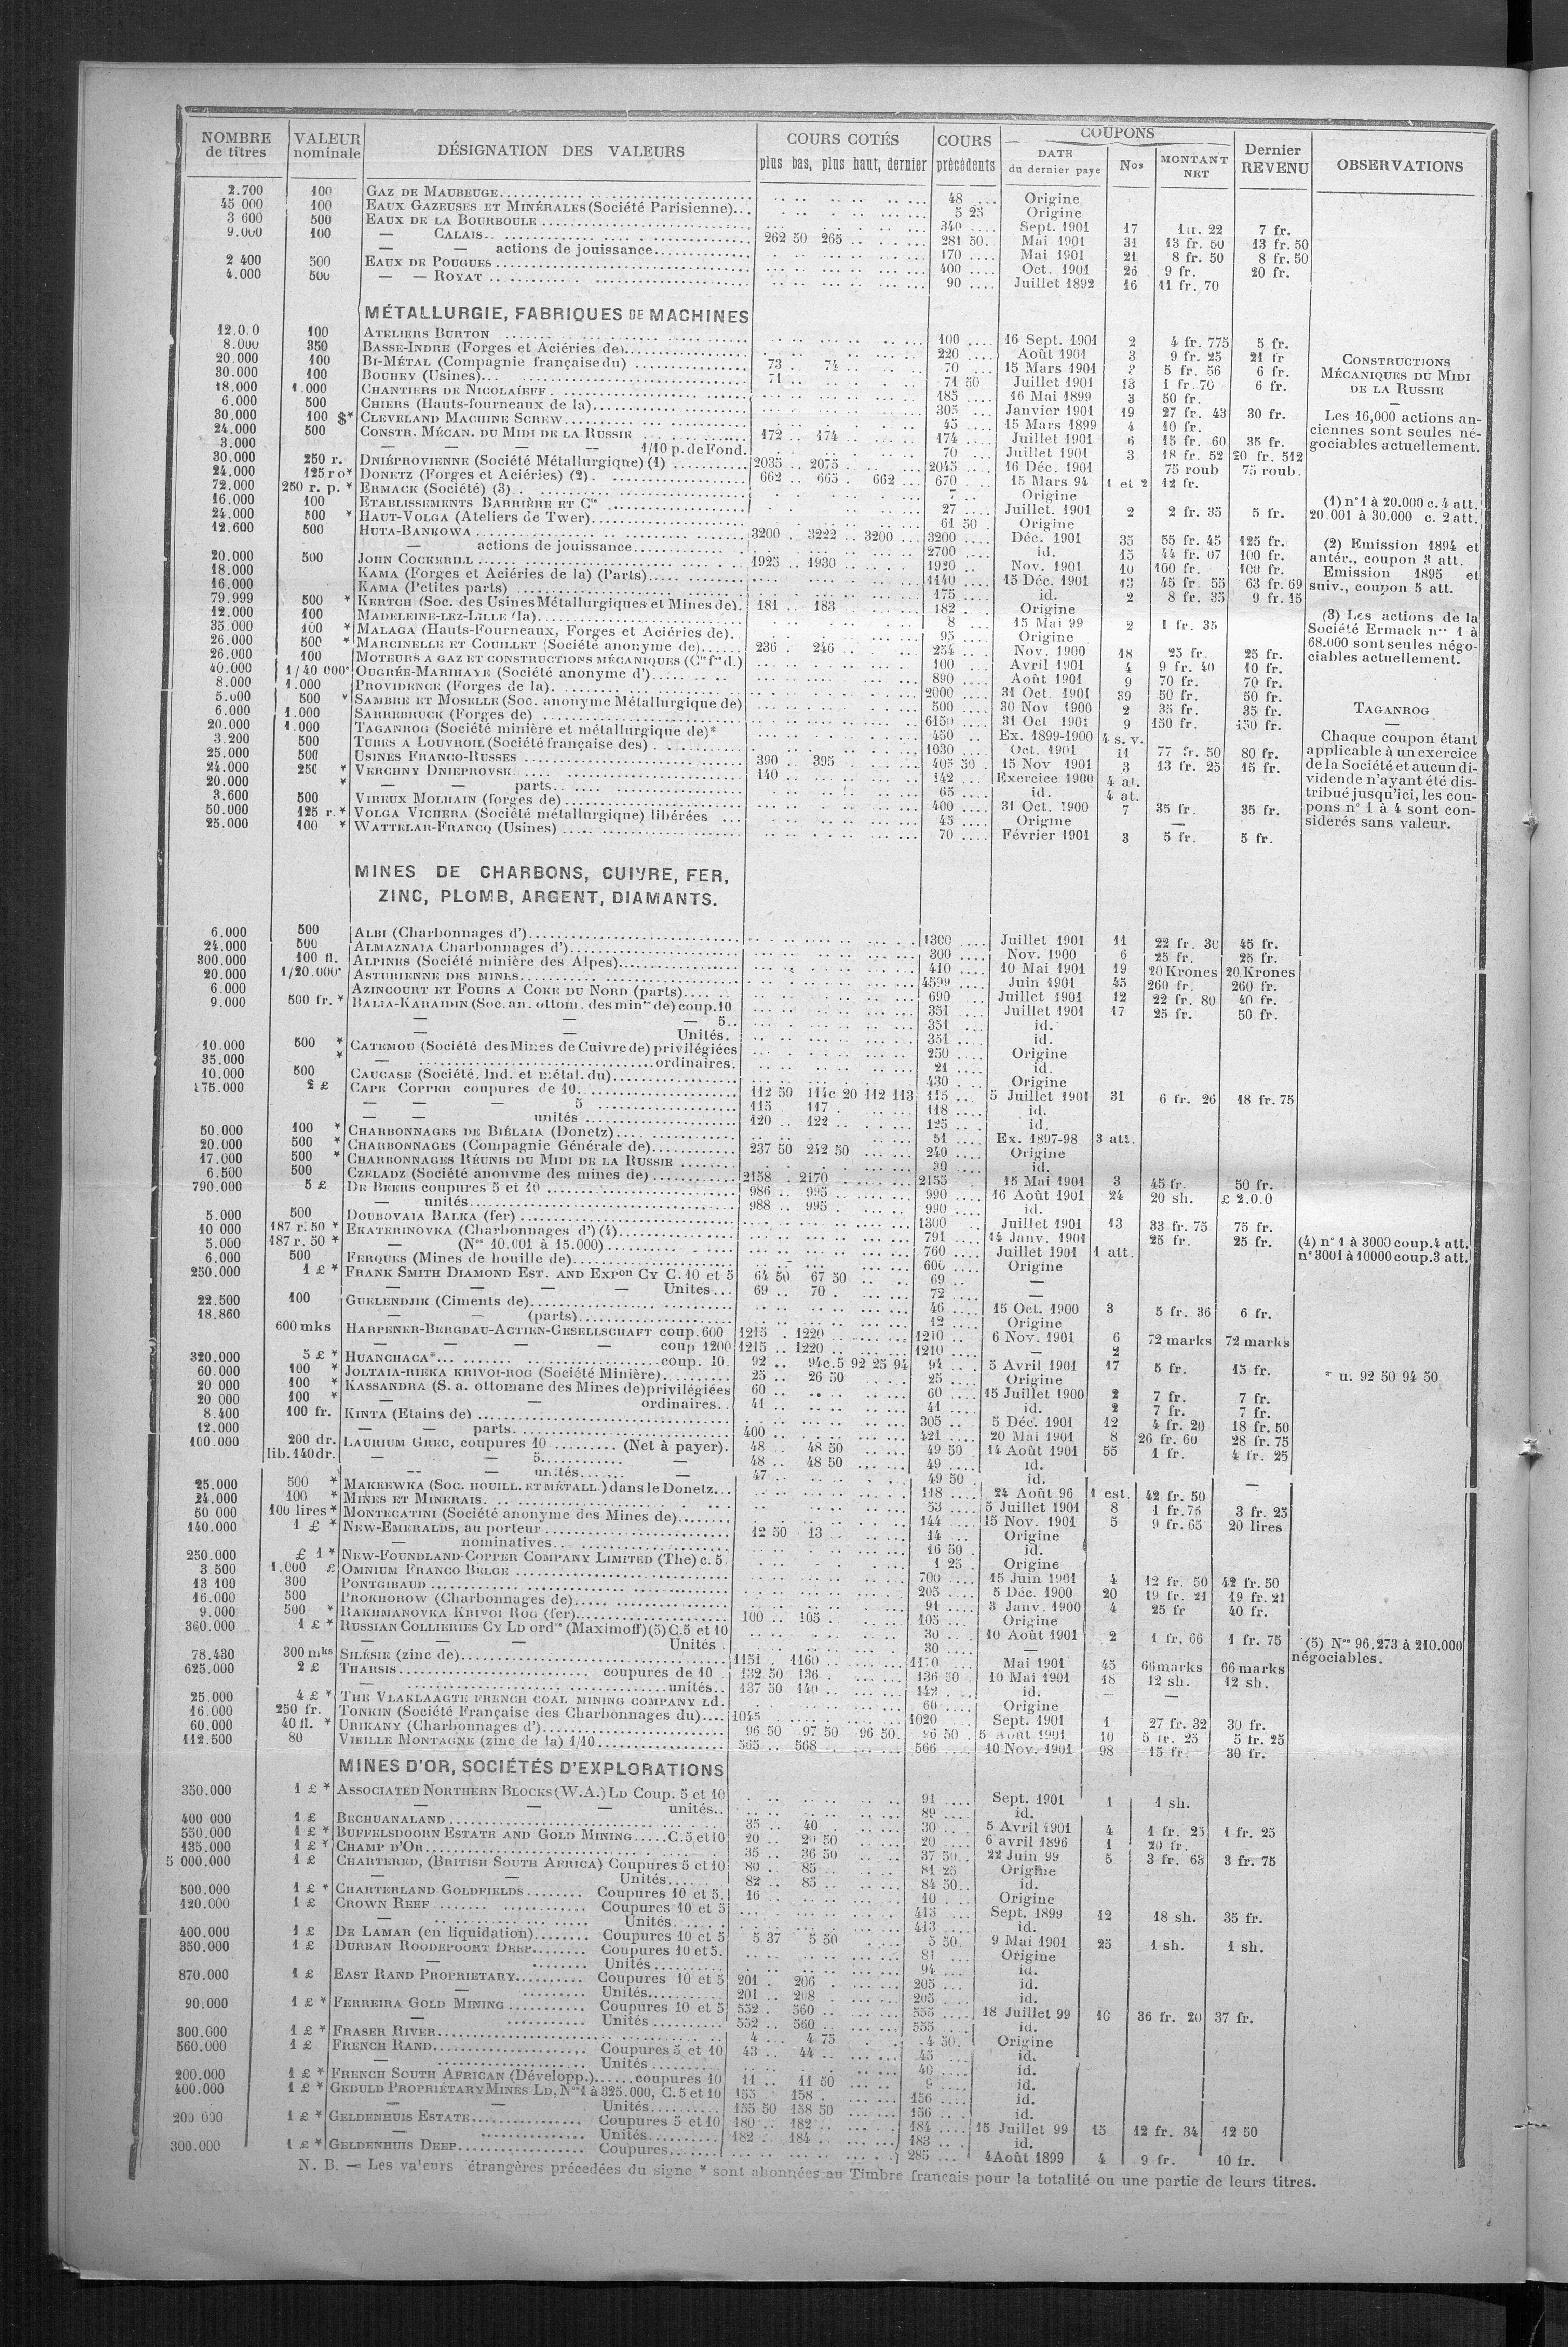 NOMBRE de titres | VALEUR nominale | DÉSIGNATION DES VALEURS | COURS COTÉS plus bas, plus haut, dernier | COURS précédents | COUPONS DATE du dernier paye | Nos | MONTANT NET | Dernier REVENU | OBSERVATIONS
2.700 100 GAZ DE MAUBEUGE 48 Origine
45 000 100 EAUX GAZEUSES ET MINÉRALES (Société Parisienne) 5 25 Origine
3 600 500 EAUX DE LA BOURBOULE 340 Sept. 1901 17 22 7 fr.
9.000 100 — CALAIS 262 50 265 281 50 Mai 1901 31 13 fr. 50 13 fr. 50
— — actions de jouissance 170 Mai 1901 21 8 fr. 50 8 fr. 50
2 400 500 EAUX DE POUGUES 400 Oct. 1901 26 9 fr. 20 fr.
4.000 500 — — ROYAT 90 Juillet 1892 16 11 fr. 70
MÉTALLURGIE, FABRIQUES DE MACHINES
100 ATELIERS BURTON 100 16 Sept. 1901 2 4 fr. 775 5 fr.
8.000 350 BASSE-INDRE (Forges et Aciéries de) 220 Août 1901 3 9 fr. 25 21 fr
20.000 100 BI-MÉTAL (Compagnie française du) 73 74 70 15 Mars 1901 5 fr. 56 6 fr.
30.000 100 BOUHEY (Usines) 71 71 50 Juillet 1901 13 1 fr. 70 6 fr.
18.000 1.000 CHANTIERS DE NICOLAÏEFF 185 16 Mai 1899 3 50 fr.
6.000 500 CHIERS (Hauts-fourneaux de la) 305 Janvier 1901 19 27 fr. 43 30 fr.
30.000 100 $* CLEVELAND MACHINE SCREW 45 15 Mars 1899 4 10 fr.
24.000 500 CONSTR. MÉCAN. DU MIDI DE LA RUSSIE 172 174 174 Juillet 1901 6 15 fr. 60 35 fr.
3.000 — — 1/10 p. de Fond. 70 Juillet 1901 3 18 fr. 52 20 fr. 512
30.000 250 r. DNIÉPROVIENNE (Société Métallurgique) (1) 2035 2075 2045 16 Déc. 1901 75 roub 75 roub.
24.000 125 ro* DONETZ (Forges et Aciéries) (2) 662 665 662 670 15 Mars 94 1 et 2 12 fr.
72.000 250 r. p. * ERMACK (Société) (3) 7 Origine
16.000 100 ETABLISSEMENTS BARRIÈRE ET Cie 27 Juillet. 1901 2 2 fr. 35 5 fr.
24.000 500 * HAUT-VOLGA (Ateliers de Twer) 61 50 Origine
12.600 500 HUTA-BANKOWA 3200 3222 3200 3200 Déc. 1901 35 55 fr. 45 125 fr.
— actions de jouissance 2700 id. 15 44 fr. 07 100 fr.
20.000 500 JOHN COCKERILL 1925 1930 1920 Nov. 1901 10 100 fr. 100 fr.
18.000 KAMA (Forges et Aciéries de la) (Parts) 1140 15 Déc. 1901 13 45 fr. 55 63 fr. 69
16.000 KAMA (Petites parts) 175 id. 2 8 fr. 35 9 fr. 15
79.999 500 * KERTCH (Soc. des Usines Métallurgiques et Mines de) 181 183 182 Origine
12.000 100 MADELEINE-LEZ-LILLE (la) 8 15 Mai 99 2 1 fr. 35
35.000 100 * MALAGA (Hauts-Fourneaux, Forges et Aciéries de) 95 Origine
26.000 500 * MARCINELLE ET COUILLET (Société anonyme de) 236 246 254 Nov. 1900 18 25 fr. 25 fr.
26.000 100 MOTEURS A GAZ ET CONSTRUCTIONS MÉCANIQUES 100 Avril 1901 4 9 fr. 40 10 fr.
40.000 1/40 000 OUGRÉE-MARIHAYE (Société anonyme d') 890 Août 1901 9 70 fr. 70 fr.
8.000 1.000 PROVIDENCE (Forges de la) 2000 31 Oct. 1901 39 50 fr. 50 fr.
5.000 500 * SAMBRE ET MOSELLE (Soc. anonyme Métallurgique de) 500 30 Nov 1900 2 35 fr. 35 fr.
6.000 1.000 SARREBRUCK (Forges de) 6150 31 Oct 1901 9 150 fr. 150 fr.
20.000 1.000 TAGANROG (Société minière et métallurgique de)* 450 Ex. 1899-1900 4 s. v.
3.200 500 TUBES A LOUVROIL (Société française des) 1030 Oct. 1901 11 77 fr. 50 80 fr.
25.000 500 USINES FRANCO-RUSSES 390 395 405 50 15 Nov 1901 3 13 fr. 25 15 fr.
24.000 250 * VERCHNY DNIEPROVSK 140 142 Exercice 1900 4 at.
20.000 * — — parts 65 id. 4 at.
3.600 500 VIREUX MOLHAIN (forges de) 400 31 Oct. 1900 7 35 fr. 35 fr.
50.000 125 r. * VOLGA VICHERA (Société métallurgique) libérées 45 Origine —
25.000 100 * WATTELAR-FRANCQ (Usines) 70 Février 1901 3 5 fr. 5 fr.
CONSTRUCTIONS
MÉCANIQUES DU MIDI
DE LA RUSSIE
—
Les 16,000 actions an-
ciennes sont seules né-
gociables actuellement.
(1) n° 1 à 20.000 c. 4 att.
20.001 à 30.000 c. 2 att.
(2) Emission 1894 et
antér., coupon 3 att.
Emission 1895 et
suiv., coupon 5 att.
(3) Les actions de la
Société Ermack nos 1 à
68.000 sont seules négo-
ciables actuellement.
TAGANROG
—
Chaque coupon étant
applicable à un exercice
de la Société et aucun di-
vidende n'ayant été dis-
tribué jusqu'ici, les cou-
pons n° 1 à 4 sont con-
siderés sans valeur.
MINES DE CHARBONS, CUIVRE, FER,
ZINC, PLOMB, ARGENT, DIAMANTS.
6.000 500 ALBI (Charbonnages d') 1300 Juillet 1901 11 22 fr. 30 45 fr.
24.000 500 ALMAZNAIA Charbonnages d') 300 Nov. 1900 6 25 fr. 25 fr.
300.000 100 fl. ALPINES (Société minière des Alpes) 410 10 Mai 1901 19 20 Krones 20 Krones
20.000 1/20.000 ASTURIENNE DES MINES 4599 Juin 1901 45 260 fr. 260 fr.
6.000 AZINCOURT ET FOURS A COKE DU NORD (parts) 690 Juillet 1901 12 22 fr. 80 40 fr.
9.000 500 fr. * BALIA-KARAIDIN (Soc. an. ottom. des mines de) coup. 10 351 Juillet 1901 17 25 fr. 50 fr.
— — — 5 351 id.
— — Unités. 351 id.
10.000 500 * CATEMOU (Société des Mines de Cuivre de) privilégiées 250 Origine
35.000 * — ordinaires. 21 id.
10.000 500 CAUCASE (Société. Ind. et métal. du) 430 Origine
175.000 2 £ CAPE COPPER coupures de 10 112 50 114c 20 112 113 115 5 Juillet 1901 31 6 fr. 26 18 fr. 75
— — — 5 115 117 118 id.
— — unités 120 122 125 id.
50.000 100 * CHARBONNAGES DE BIÉLAIA (Donetz) 51 Ex. 1897-98 3 att.
20.000 500 * CHARBONNAGES (Compagnie Générale de) 237 50 242 50 240 Origine
17.000 500 * CHARBONNAGES RÉUNIS DU MIDI DE LA RUSSIE 30 id.
6.500 500 CZELADZ (Société anonyme des mines de) 2158 2170 2155 15 Mai 1901 3 45 fr. 50 fr.
790.000 5 £ DE BEERS coupures 5 et 10 986 995 990 16 Août 1901 24 20 sh. £ 2.0.0
— unités 988 995 990 id.
5.000 500 DOUBOVAIA BALKA (fer) 1300 Juillet 1901 13 33 fr. 75 75 fr.
10 000 187 r. 50 * EKATERINOVKA (Charbonnages d') (4) 791 14 Janv. 1901 25 fr. 25 fr.
5.000 187 r. 50 * — (Nos 10.001 à 15.000) 760 Juillet 1901 1 att.
6.000 500 FERQUES (Mines de houille de) 600 Origine
250.000 1 £ * FRANK SMITH DIAMOND EST. AND EXPon CY C. 10 et 5 64 50 67 50 69 —
— — — — Unités 69 70 72 —
22.500 100 GUELENDJIK (Ciments de) 46 15 Oct. 1900 3 5 fr. 36 6 fr.
18.860 — — (parts) 12 Origine
600 mks HARPENER-BERGBAU-ACTIEN-GESELLSCHAFT coup. 600 1215 1220 1210 6 Nov. 1901 6 72 marks 72 marks
— — — — coup 1200 1215 1220 1210 — 2
320.000 5 £ * HUANCHACA* coup. 10. 92 94c.5 92 25 94 94 5 Avril 1901 17 5 fr. 15 fr.
60.000 100 * JOLTAIA-RIEKA KRIVOI-ROG (Société Minière) 25 26 50 25 Origine
20 000 100 * KASSANDRA (S. a. ottomane des Mines de) privilégiées 60 60 15 Juillet 1900 2 7 fr. 7 fr.
20 000 100 * — — ordinaires 41 41 id. 2 7 fr. 7 fr.
8.400 100 fr. KINTA (Etains de) 305 5 Déc. 1901 12 4 fr. 20 18 fr. 50
12.000 — — parts 400 421 20 Mai 1901 8 26 fr. 60 28 fr. 75
100.000 200 dr. LAURIUM GREC, coupures 10 (Net à payer). 48 48 50 49 50 14 Août 1901 55 1 fr. 4 fr. 25
lib. 140 dr. — — 5 — 48 48 50 49 id.
— — unités — 47 49 50 id.
25.000 500 * MAKEEWKA (SOC. HOUILL. ET MÉTALL.) dans le Donetz 118 24 Août 96 1 est. 42 fr. 50 —
24.000 100 * MINES ET MINERAIS 53 5 Juillet 1901 8 1 fr. 75 3 fr. 25
50 000 100 lires * MONTECATINI (Société anonyme des Mines de) 144 15 Nov. 1901 5 9 fr. 65 20 lires
140.000 1 £ * NEW-EMERALDS, au porteur 12 50 13 14 Origine
— nominatives 16 50 id.
250.000 £ 1 * NEW-FOUNDLAND COPPER COMPANY LIMITED (The) c. 5. 1 25 Origine
3 500 1.000 £ OMNIUM FRANCO BELGE 700 15 Juin 1901 4 12 fr. 50 42 fr. 50
13 100 300 PONTGIBAUD 205 5 Déc. 1900 20 19 fr. 21 19 fr. 21
16.000 500 PROKHOROW (Charbonnages de) 91 3 Janv. 1900 4 25 fr 40 fr.
9.000 500 * RAKHMANOVKA KRIVOI ROG (fer) 100 105 105 Origine
360.000 1 £ * RUSSIAN COLLIERIES CY LD ordres (Maximoff) (5) C. 5 et 10 30 10 Août 1901 2 1 fr. 66 1 fr. 75
— — — Unités 30 —
78.430 300 mks SILÉSIE (zinc de) 1151 1160 1170 Mai 1901 45 66 marks 66 marks
625.000 2 £ THARSIS coupures de 10 132 50 136 136 50 10 Mai 1901 18 12 sh. 12 sh.
— unités 137 50 140 142 id. — —
25.000 4 £ * THE VLAKLAAGTE FRENCH COAL MINING COMPANY LD. 60 Origine
16.000 250 fr. TONKIN (Société Française des Charbonnages du) 1045 1020 Sept. 1901 1 27 fr. 32 30 fr.
60.000 40 fl. * URIKANY (Charbonnages d') 96 50 97 50 96 50 96 50 5 Août 1901 10 5 fr. 25 5 fr. 25
112.500 80 VIEILLE MONTAGNE (zinc de la) 1/10 565 568 566 10 Nov. 1901 98 15 fr. 30 fr.
(4) n° 1 à 3000 coup. 4 att.
n° 3001 à 10000 coup. 3 att.
* u. 92 50 94 50
(5) Nos 96.273 à 210.000
négociables.
MINES D'OR, SOCIÉTÉS D'EXPLORATIONS
350.000 1 £ * ASSOCIATED NORTHERN BLOCKS (W.A.) LD Coup. 5 et 10 91 Sept. 1901 1 1 sh.
— — — unités 89 id.
400 000 1 £ BECHUANALAND 35 40 30 5 Avril 1901 4 1 fr. 25 1 fr. 25
550.000 1 £ * BUFFELSDOORN ESTATE AND GOLD MINING C. 5 et 10 20 20 50 20 6 avril 1896 1 20 fr.
135.000 1 £ * CHAMP D'OR 35 36 50 37 50 22 Juin 99 5 3 fr. 65 3 fr. 75
5 000.000 1 £ CHARTERED, (BRITISH SOUTH AFRICA) Coupures 5 et 10 80 85 81 25 Origine
— — Unités 82 85 84 50 id.
500.000 1 £ * CHARTERLAND GOLDFIELDS Coupures 10 et 5. 16 10 Origine
120.000 1 £ CROWN REEF Coupures 10 et 5 415 Sept. 1899 12 18 sh. 35 fr.
— Unités 413 id.
400.000 1 £ DE LAMAR (en liquidation) Coupures 10 et 5 5 37 5 50 5 50 9 Mai 1901 25 1 sh. 1 sh.
350.000 1 £ DURBAN ROODEPOORT DEEP Coupures 10 et 5. 81 Origine
— Unités 94 id.
870.000 1 £ EAST RAND PROPRIETARY Coupures 10 et 5 201 206 205 id.
— Unités 201 208 205 id.
90.000 1 £ * FERREIRA GOLD MINING Coupures 10 et 5 552 560 555 18 Juillet 99 10 36 fr. 20 37 fr.
— Unités 552 560 555 id.
300.000 1 £ * FRASER RIVER 4 4 75 4 50 Origine
560.000 1 £ FRENCH RAND Coupures 5 et 10 43 44 45 id.
— Unités 40 id.
200.000 1 £ * FRENCH SOUTH AFRICAN (Développ.) coupures 10 11 11 50 9 id.
400.000 1 £ * GEDULD PROPRIÉTARY MINES LD, Nos 1 à 325.000, C. 5 et 10 155 158 156 id.
— — Unités 155 50 158 50 156 id.
200 000 1 £ * GELDENHUIS ESTATE Coupures 5 et 10 180 182 184 15 Juillet 99 15 12 fr. 34 12 50
— Unités 182 184 183 id.
300.000 1 £ * GELDENHUIS DEEP Coupures 285 4 Août 1899 4 9 fr. 10 fr.
N. B. — Les valeurs étrangères précedées du signe * sont abonnées au Timbre français pour la totalité ou une partie de leurs titres.